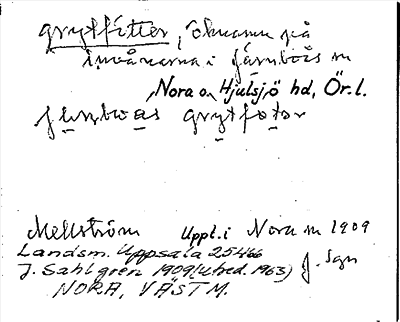 grytfötter, öknamn på
invånarna i Järnboås sn
Nora o. Hjulsjö hd, Ör.l.
grytfotor
Mellström Uppt. i Nora sn 1909
Landsm. Uppsala 25466
J. Sahlgren 1909 (uhed. 1963) J. Sgn
NORA, VÄSTM.